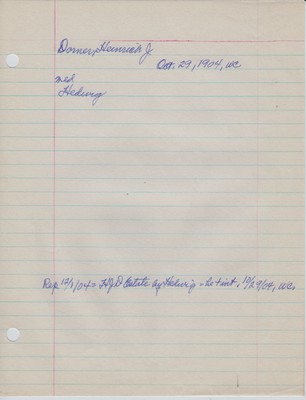 Dorner, Heinrich J.
Oct. 29, 1904, WC
med
Hedwig
Rep 12/1/04 = HJD Estate by Hedwig - Le + int, 10/29/04, WC.